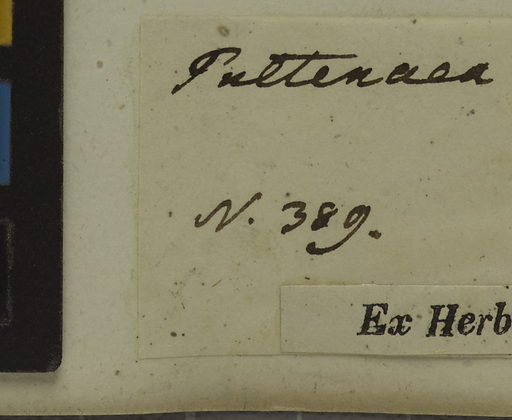 Pultenaea
N. 389.
Ex Herb